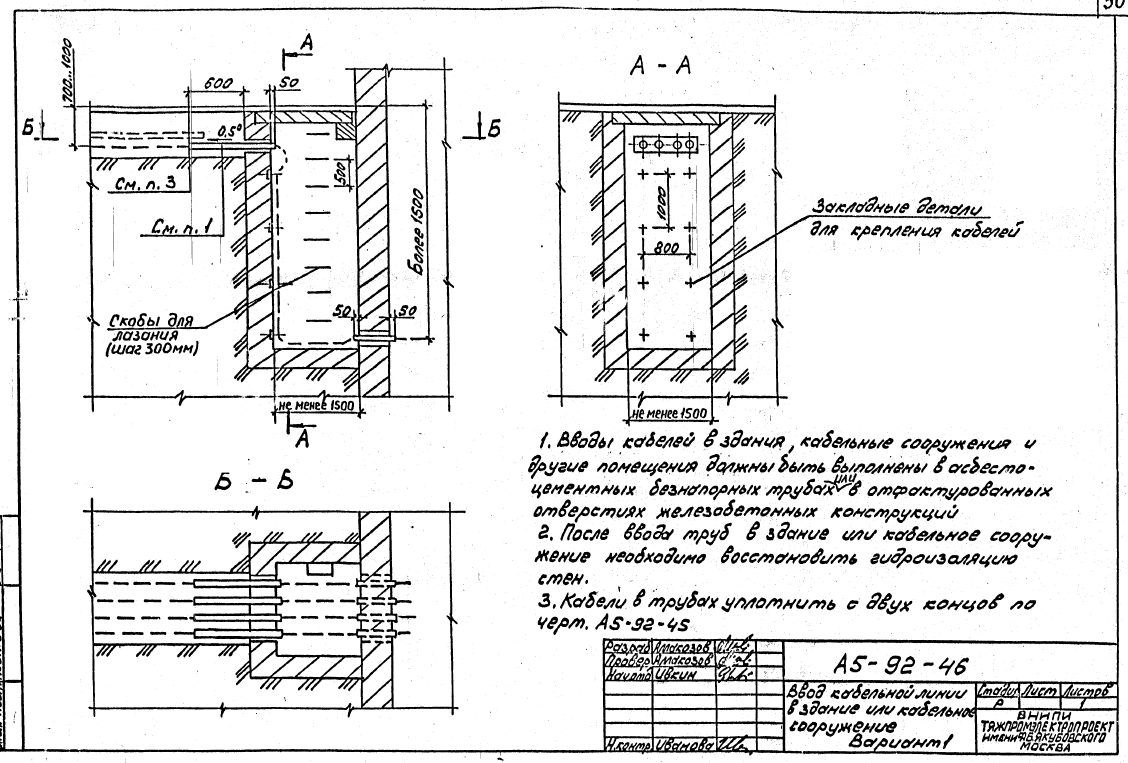 50
А
А - А
700...1000
600
50
Б
Б
0,5°
500
См. п. 3
См. п. 1
Более 1500
1000
800
Закладные детали
для крепления кабелей
Скобы для
лазания
(шаг 300мм)
50
50
не менее 1500
не менее 1500
А
Б - Б
1. Вводы кабелей в здания, кабельные сооружения и
другие помещения должны быть выполнены в асбесто-
цементных безнапорных трубах или в отфактурованных
отверстиях железобетонных конструкций
2. После ввода труб в здание или кабельное соору-
жение необходимо восстановить гидроизоляцию
стен.
3. Кабели в трубах уплотнить с двух концов по
черт. А5-92-45
Разраб Амакозов
Провер Амакозов
Нач.отд Ивкин
Н.контр Иванова
А5-92-46
Ввод кабельной линии
в здание или кабельное
сооружение
Вариант 1
Стадия Лист Листов
Р 1
ВНИПИ
ТЯЖПРОМЭЛЕКТРОПРОЕКТ
ИМЕНИ Ф.Б.ЯКУБОВСКОГО
МОСКВА